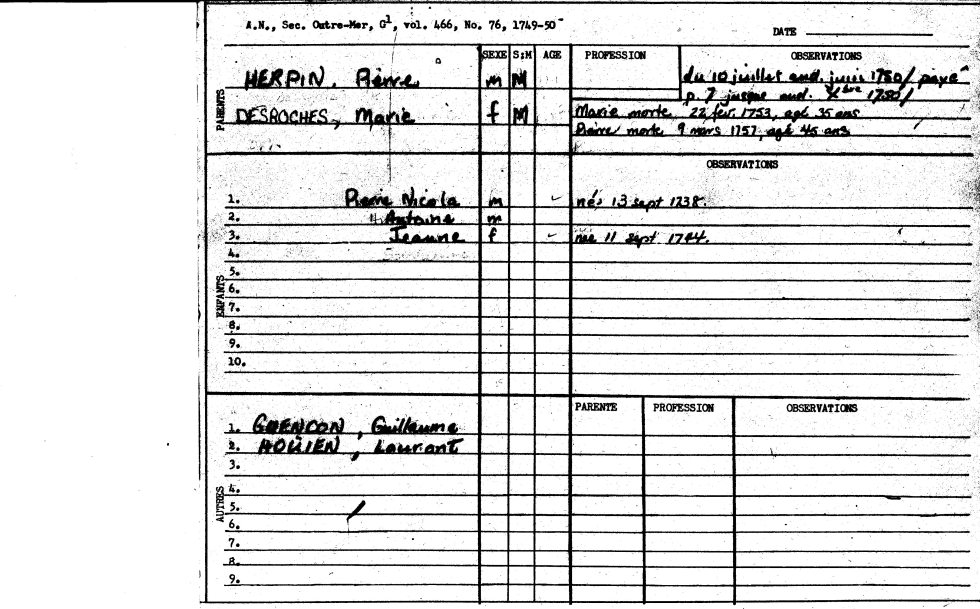 A.N., Sec. Outre-Mer, G1, vol. 466, No. 76, 1749-50
DATE
SEXE S:M AGE PROFESSION OBSERVATIONS
PARENTS
HERPIN, Pierre m M du 10 juillet aud. juin 1750/ payé
p. 7 jusque aud. Xbre 1750/
DESROCHES, Marie f M Marie morte 22 fev. 1753, agé 35 ans
Pierre morte 9 mars 1757, agé 45 ans
OBSERVATIONS
ENFANTS
1. Pierre Nicola m né 13 sept 1738.
2. Antoine m
3. Jeanne f née 11 sept 1744.
4.
5.
6.
7.
8.
9.
10.
PARENTE PROFESSION OBSERVATIONS
AUTRES
1. GUENCON, Guillaume
2. HOÜIEN, Laurant
3.
4.
5.
6.
7.
8.
9.